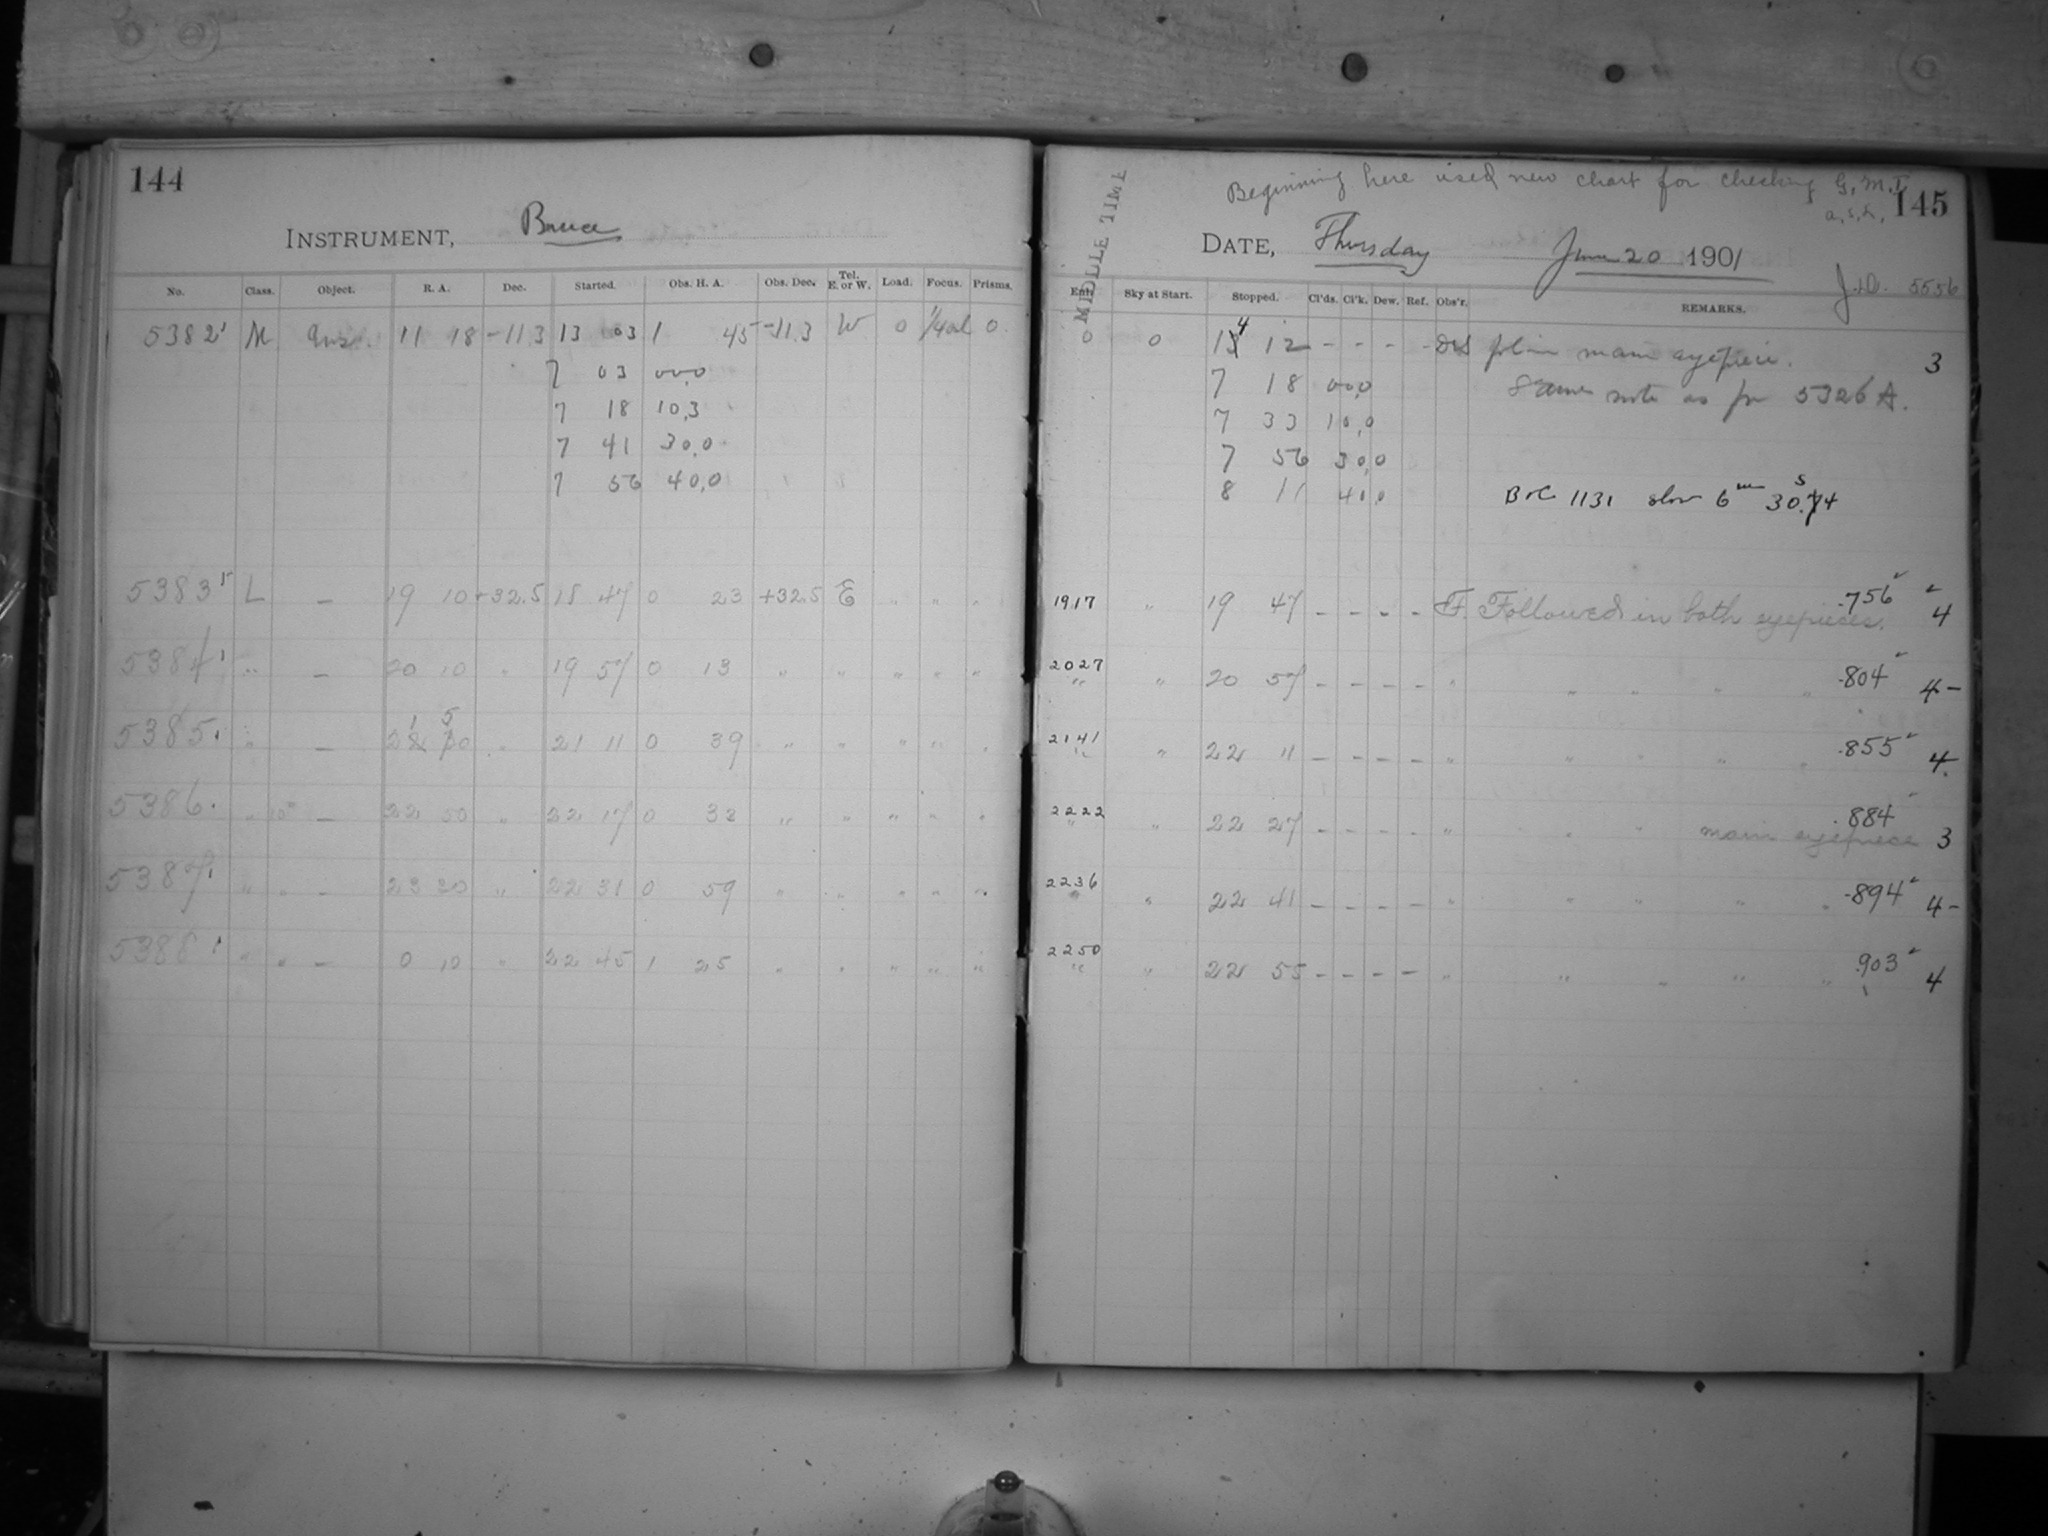 144
INSTRUMENT, Bruce
No. Class. Object. R. A. Dec. Started. Obs. H. A. Obs. Dec. Tel. E. or W. Load. Focus. Prisms.
5382 M 11 18 -11.3 13 03 1 45 -11.3 W 0 0
7 03 00.0
7 18 10.3
7 41 30.0
7 56 40.0
5383 L — 19 10 +32.5 18 47 0 23 +32.5 E " " "
5384 " — 20 10 " 19 57 0 13 " " " " "
5385 " — 21 50 " 21 11 0 39 " " " " "
5386 " 10 — 22 50 " 22 17 0 33 " " " " "
5387 " " — 23 30 " 22 31 0 59 " " " " "
5388 " " — 0 10 " 22 45 1 25 " " " " "
Beginning here used new chart for checking G.M.T.
145
MIDDLE TIME
DATE, Thursday June 20 1901
J.D. 5556
Sky at Start. Stopped. Cl'ds. Cl'k. Dew. Ref. Obs'r. REMARKS.
0 0 14 12 - - - - main eyepiece. 3
7 18 00.0 Same note as for 5326 A.
7 33 10.0
7 56 30.0
8 11 41.0 slow 6 m 30.74 s
1917 " 19 47 - - - - F. Followed in both eyepieces. .756 4
2027 " " 20 57 - - - - " " " " " .804 4-
2141 " " 22 11 - - - - " " " " " .855 4
2222 " " 22 27 - - - - " " " main eyepiece .884 3
2236 " " 22 41 - - - - " " " " " .894 4-
2250 " " 22 55 - - - - " " " " " .903 4